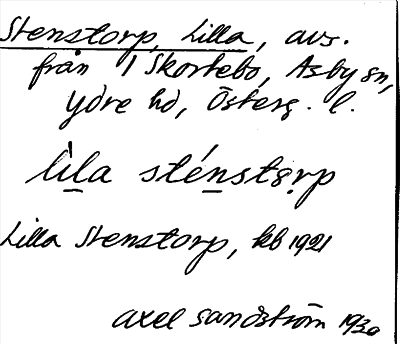 Stenstorp, Lilla, avs.
från 1 Skortebo, Asby sn,
Ydre hd, Österg. l.
lìla sténstørp
Lilla Stenstorp, kb 1921
Axel Sandström 1930